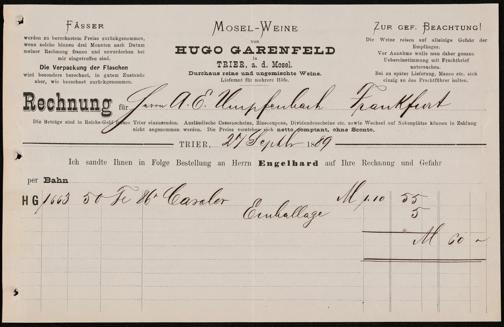 FÄSSER
werden zu berechnetem Preise zurückgenommen,
wenn solche binnen drei Monaten nach Datum
meiner Rechnung franco und unverdorben bei
mir eingetroffen sind.
Die Verpackung der Flaschen
wird besonders berechnet, in gutem Zustande
aber, wie berechnet zurückgenommen.
MOSEL-WEINE
von
HUGO GARENFELD
in
TRIER, a. d. Mosel.
Durchaus reine und ungemischte Weine.
Lieferant für mehrere Höfe.
ZUR GEF. BEACHTUNG!
Die Weine reisen auf alleinige Gefahr der
Empfänger.
Vor Annahme wolle man daher genaue
Uebereinstimmung mit Frachtbrief
untersuchen.
Bei zu später Lieferung, Manco etc. sich
einzig an den Frachtführer halten.
Rechnung für Herrn A. E. Frankfurt
Die Beträge sind in Reichs-Geld franco Trier einzusenden. Ausländische Cassenscheine, Zinscoupons, Dividendenscheine etc. sowie Wechsel auf Nebenplätze können in Zahlung
nicht angenommen werden. Die Preise verstehen sich netto comptant, ohne Sconto.
TRIER, 27 Septbr 1889
Ich sandte Ihnen in Folge Bestellung an Herrn Engelhard auf Ihre Rechnung und Gefahr
per Bahn
HG/1663 50 Fl M 1.10 55
Emballage 5
M 60 –